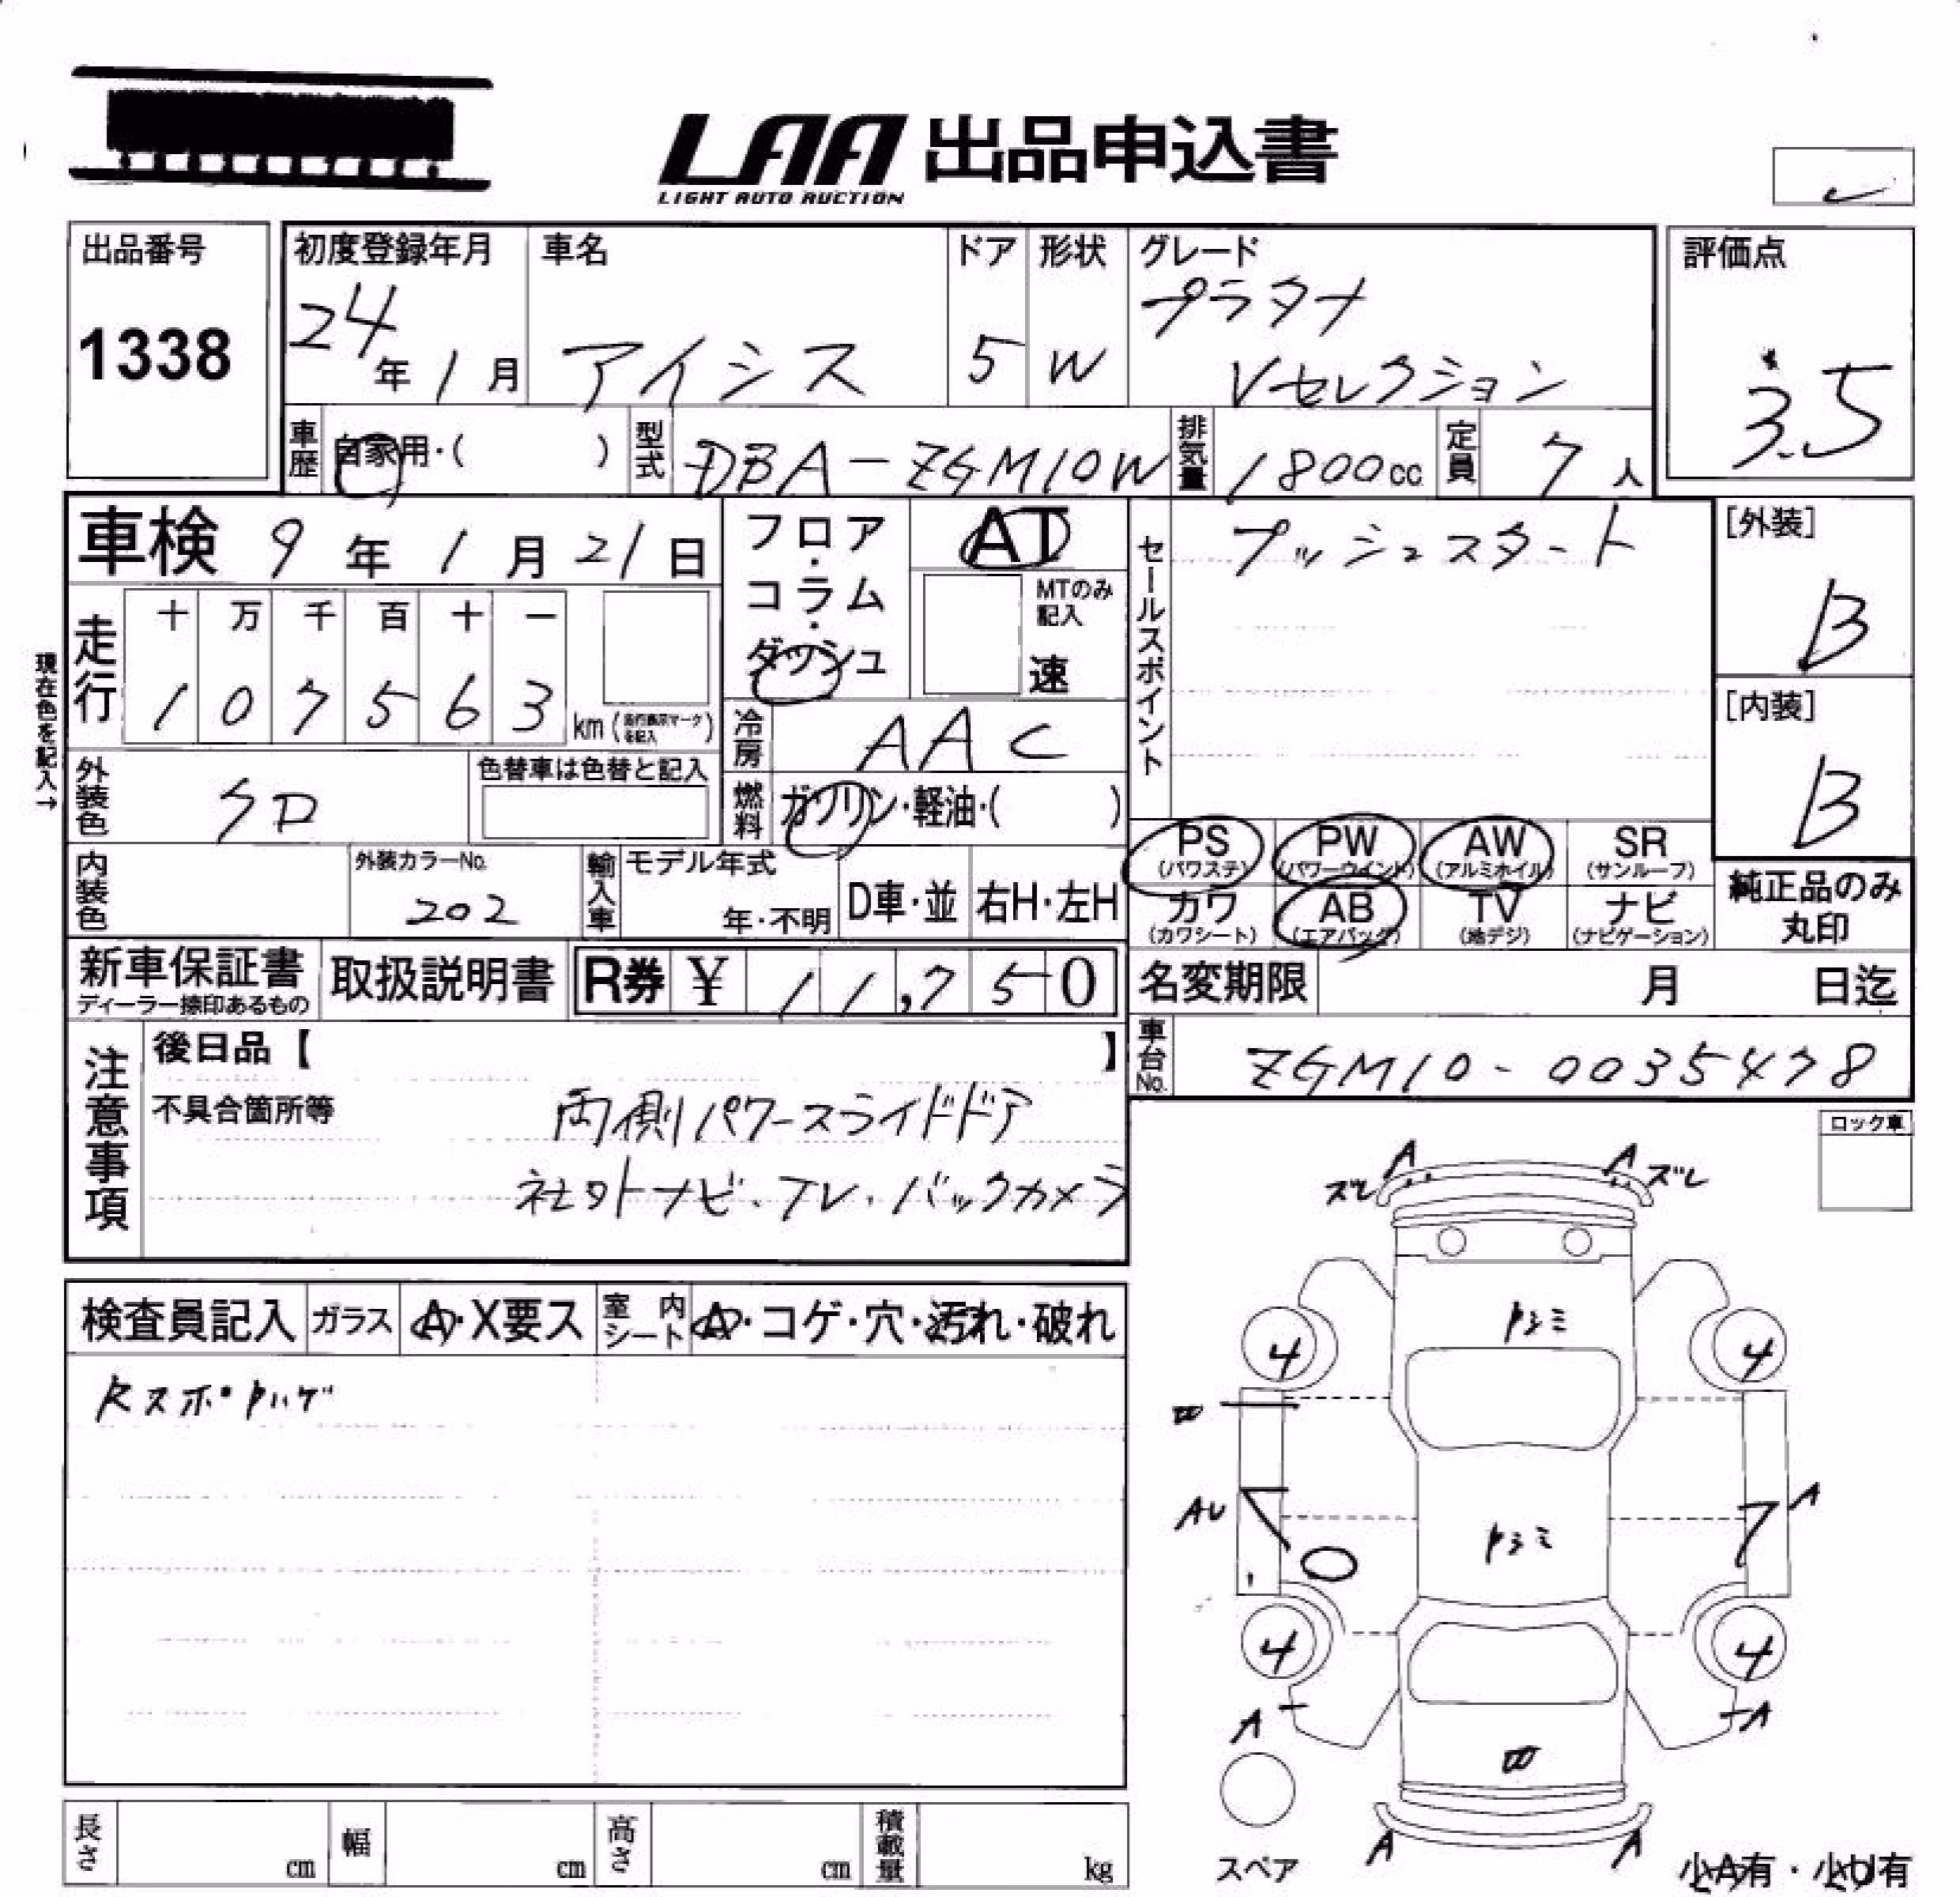 LAA 出品申込書
LIGHT AUTO AUCTION
出品番号
1338
初度登録年月
24年1月
車名
アイシス
ドア
5
形状
W
グレード
プラタナ
Vセレクション
評価点
3.5
車歴
自家用・( )
型式
DBA-ZGM10W
排気量
1800cc
定員
7人
車検 9年1月21日
フロア・コラム・ダッシュ
AT
MTのみ記入
速
セールスポイント
プッシュスタート
[外装]
B
[内装]
B
現在色を記入→
走行
十 万 千 百 十 一
1 0 7 5 6 3
km (走行表示マークを記入)
冷房
AAC
外装色
クロ
色替車は色替と記入
燃料
ガソリン・軽油・( )
PS (パワステ)
PW (パワーウインド)
AW (アルミホイル)
SR (サンルーフ)
カワ (カワシート)
AB (エアバッグ)
TV (地デジ)
ナビ (ナビゲーション)
純正品のみ丸印
内装色
外装カラーNo.
202
輸入車
モデル年式
年・不明
D車・並
右H・左H
新車保証書
ディーラー捺印あるもの
取扱説明書
R券 ¥ 11,750
名変期限 月 日迄
車台No.
ZGM10-0035478
注意事項
後日品【 】
不具合箇所等
両側パワースライドドア
社外ナビ・TV・バックカメラ
ロック車
検査員記入
ガラス
A・X要ス
室内シート
A・コゲ・穴・汚れ・破れ
A
A
ズレ
ズレ
4
4
AU
A
4
4
A
A
A
A
スペア
小A有・小U有
長さ cm
幅 cm
高さ cm
積載量 kg